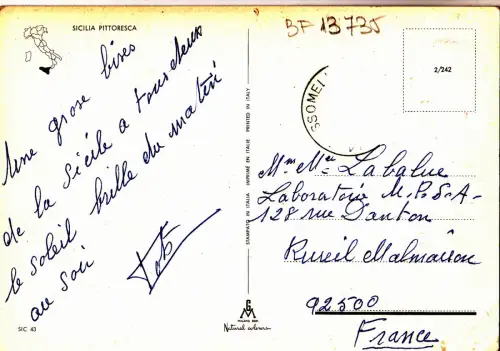 SICILIA PITTORESCA
BF 13735
2/242
Une grose bises
de la Sicile a tous deux
le soleil brille du matin
au soir
STAMPATO IN ITALIA IMPRIMÉ EN ITALIE PRINTED IN ITALY
SSOMEI
Mme Labalue
Laboratoire M.P.S.A.
128 rue Danton
Rureil Malmaison
92500
France
GM
MILANO
Natural colours
SIC 43